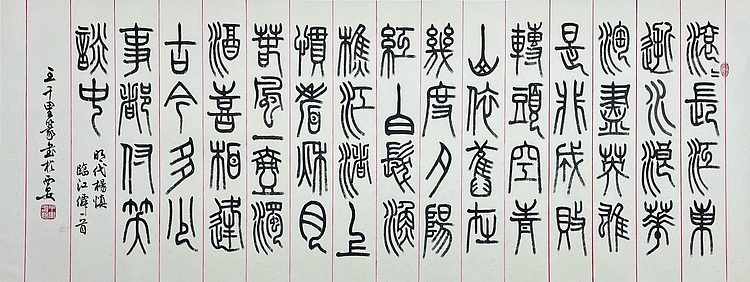 滾〻長江東
逝水浪華
淘盡英雄
是非成敗
轉頭空青
山依舊在
幾度夕陽
紅白髮漁
樵江渚上
慣看秋月
春風一壺濁
酒喜相逢
古今多少
事都付笑
談中
明代楊慎
臨江僊一首
王千里篆書於